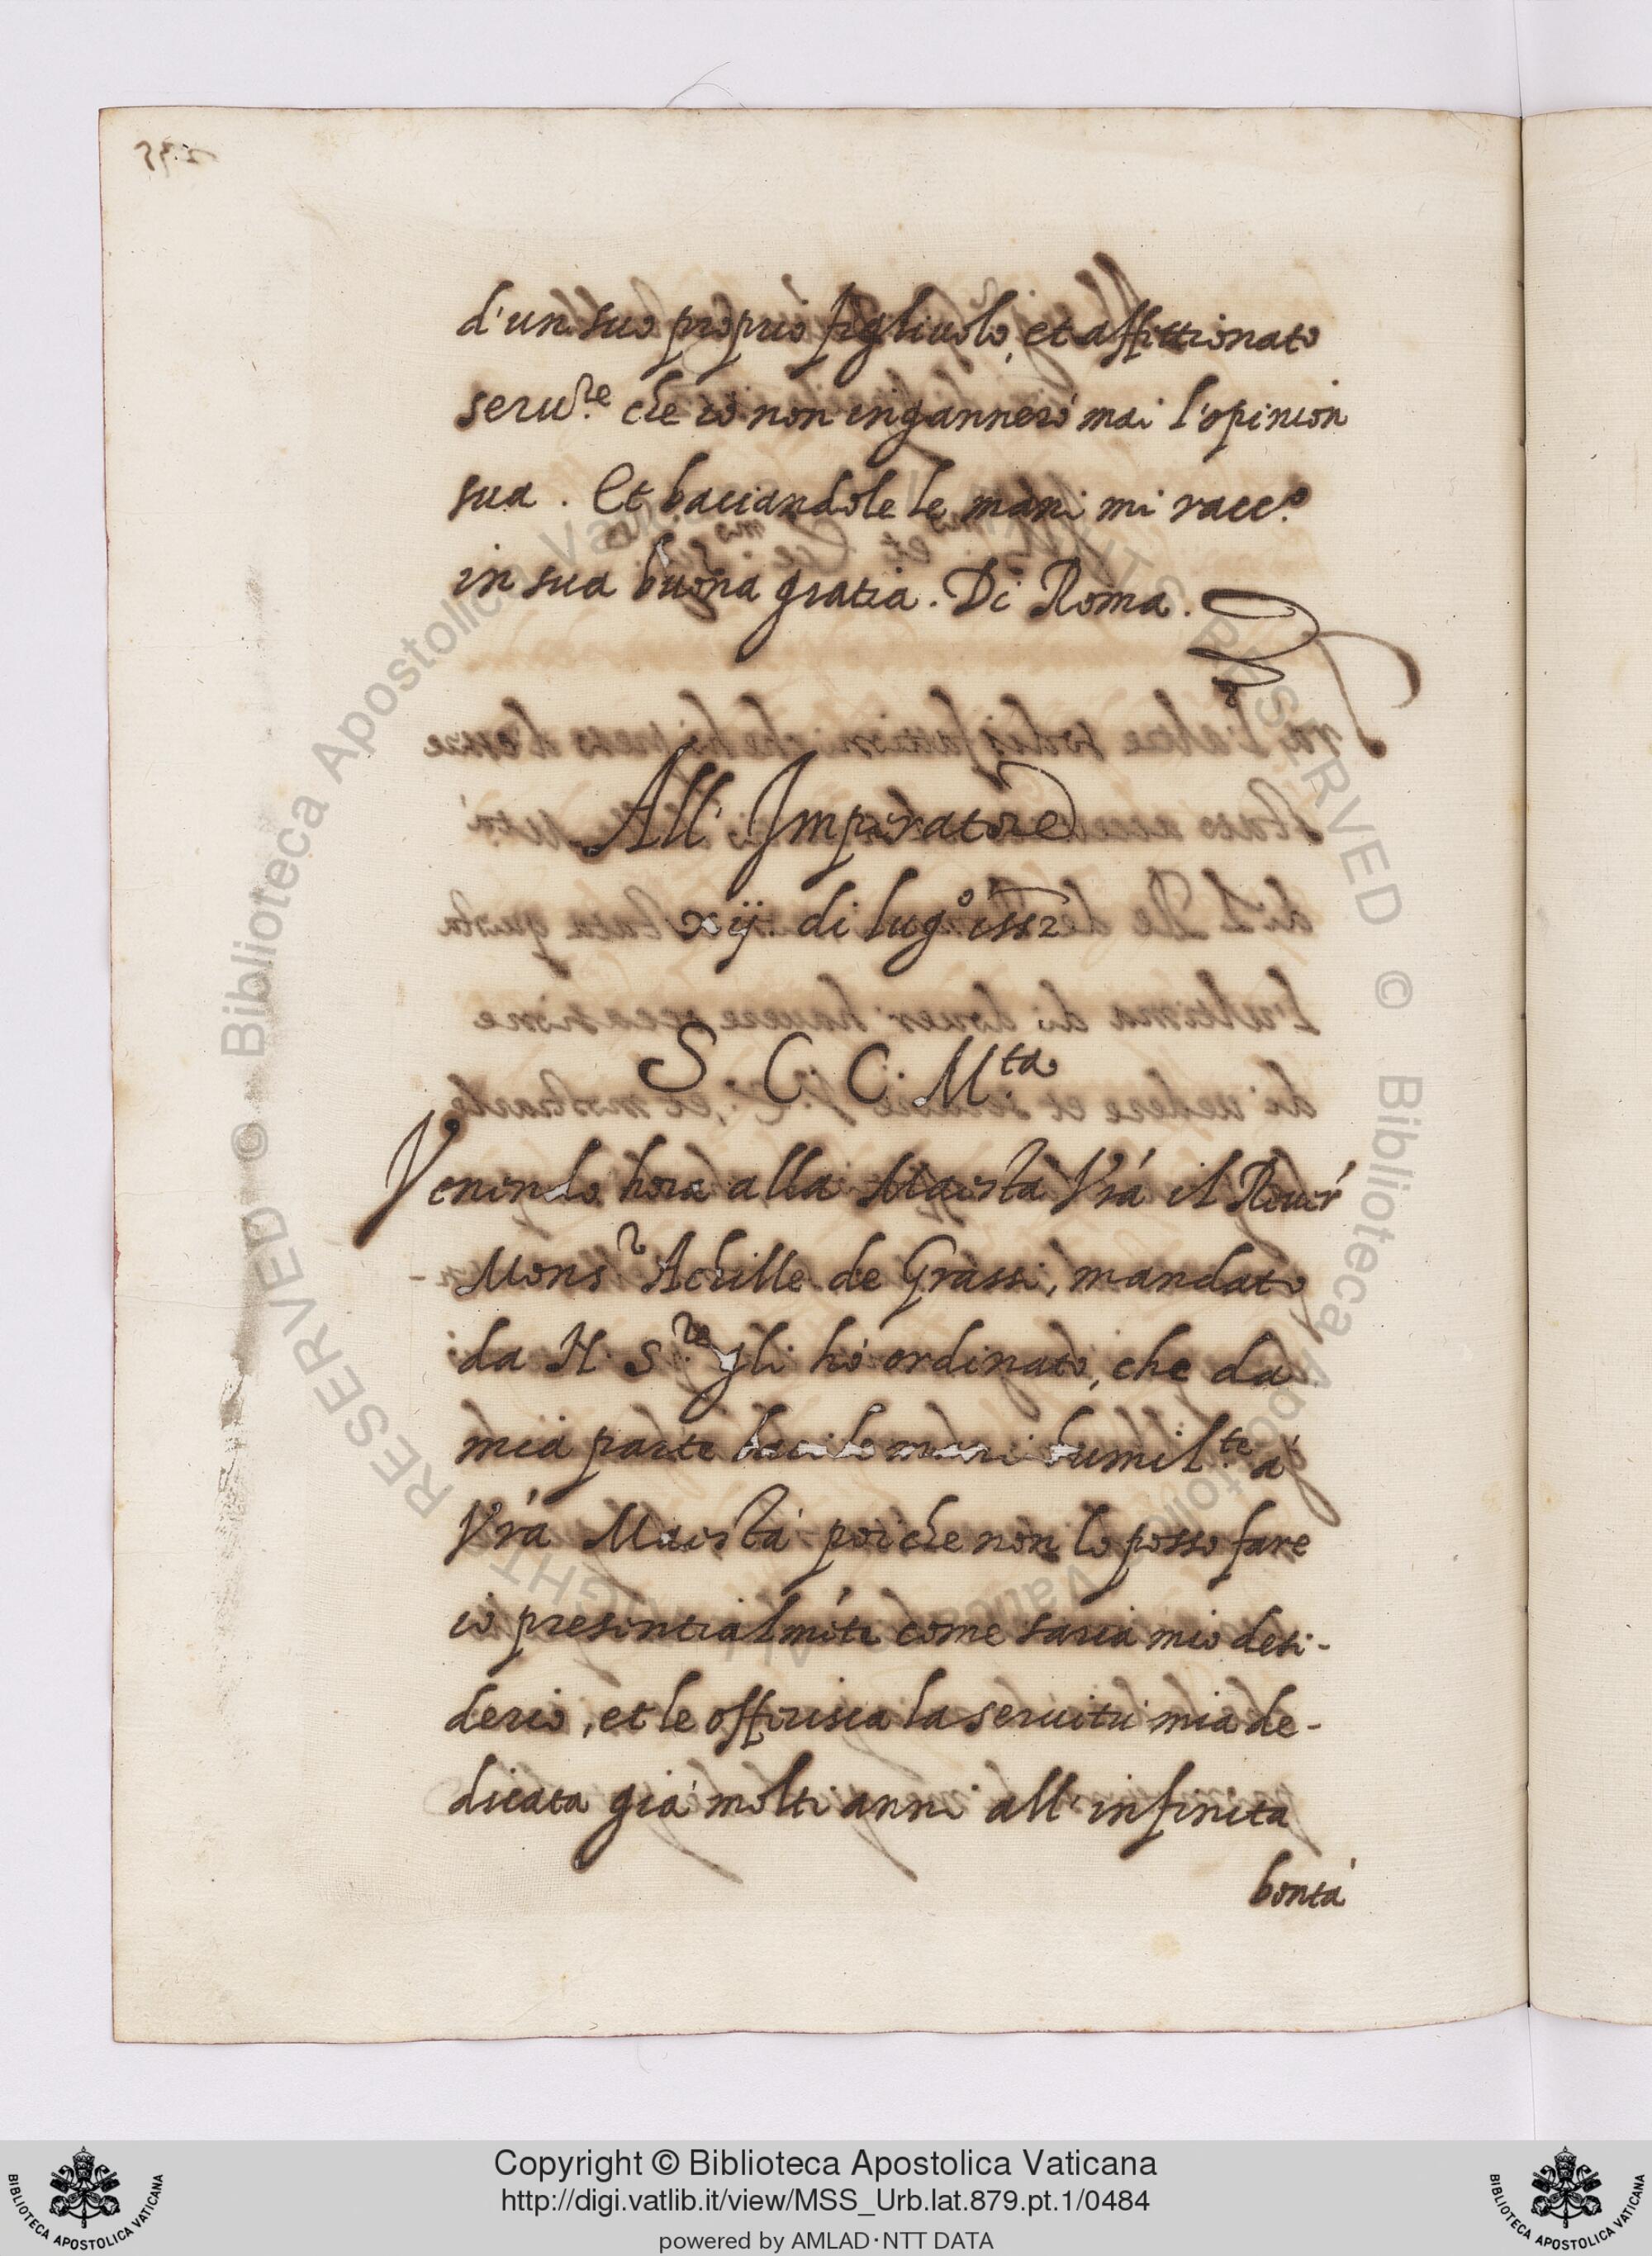 d'un suo proprio figliuolo, et affettionato
seru.re che io non ingannerò mai l'opinion
sua. Et baciandole le mani mi racc.o
in sua buona gratia. Di Roma.
All' Imperatore
xij di lug.o 1552
S. C. C. M.ta
Venendo hora alla Maestà Vrá il Reuer
Mons.r Achille de Grassi, mandato
da N. S.re gli hò ordinato, che da
mia parte baci le mani humil.te à
Vrá Maestà poi che non lo posso fare
io presentialméte come saria mio desi-
derio, et le offerisca la seruitù mia de-
dicata già molti anni all' infinita
bontà
Copyright © Biblioteca Apostolica Vaticana
http://digi.vatlib.it/view/MSS_Urb.lat.879.pt.1/0484
powered by AMLAD·NTT DATA
BIBLIOTECA APOSTOLICA VATICANA
BIBLIOTECA APOSTOLICA VATICANA